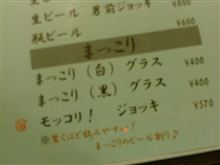 生ビール 男前ジョッキ ¥800
¥600
瓶ビール
まっこり
まっこり（白）グラス ¥400
まっこり（黒）グラス ¥400
モッコリ！ ジョッキ ¥570
※驚くほど飲みやすい
まっこりのビール割り♪